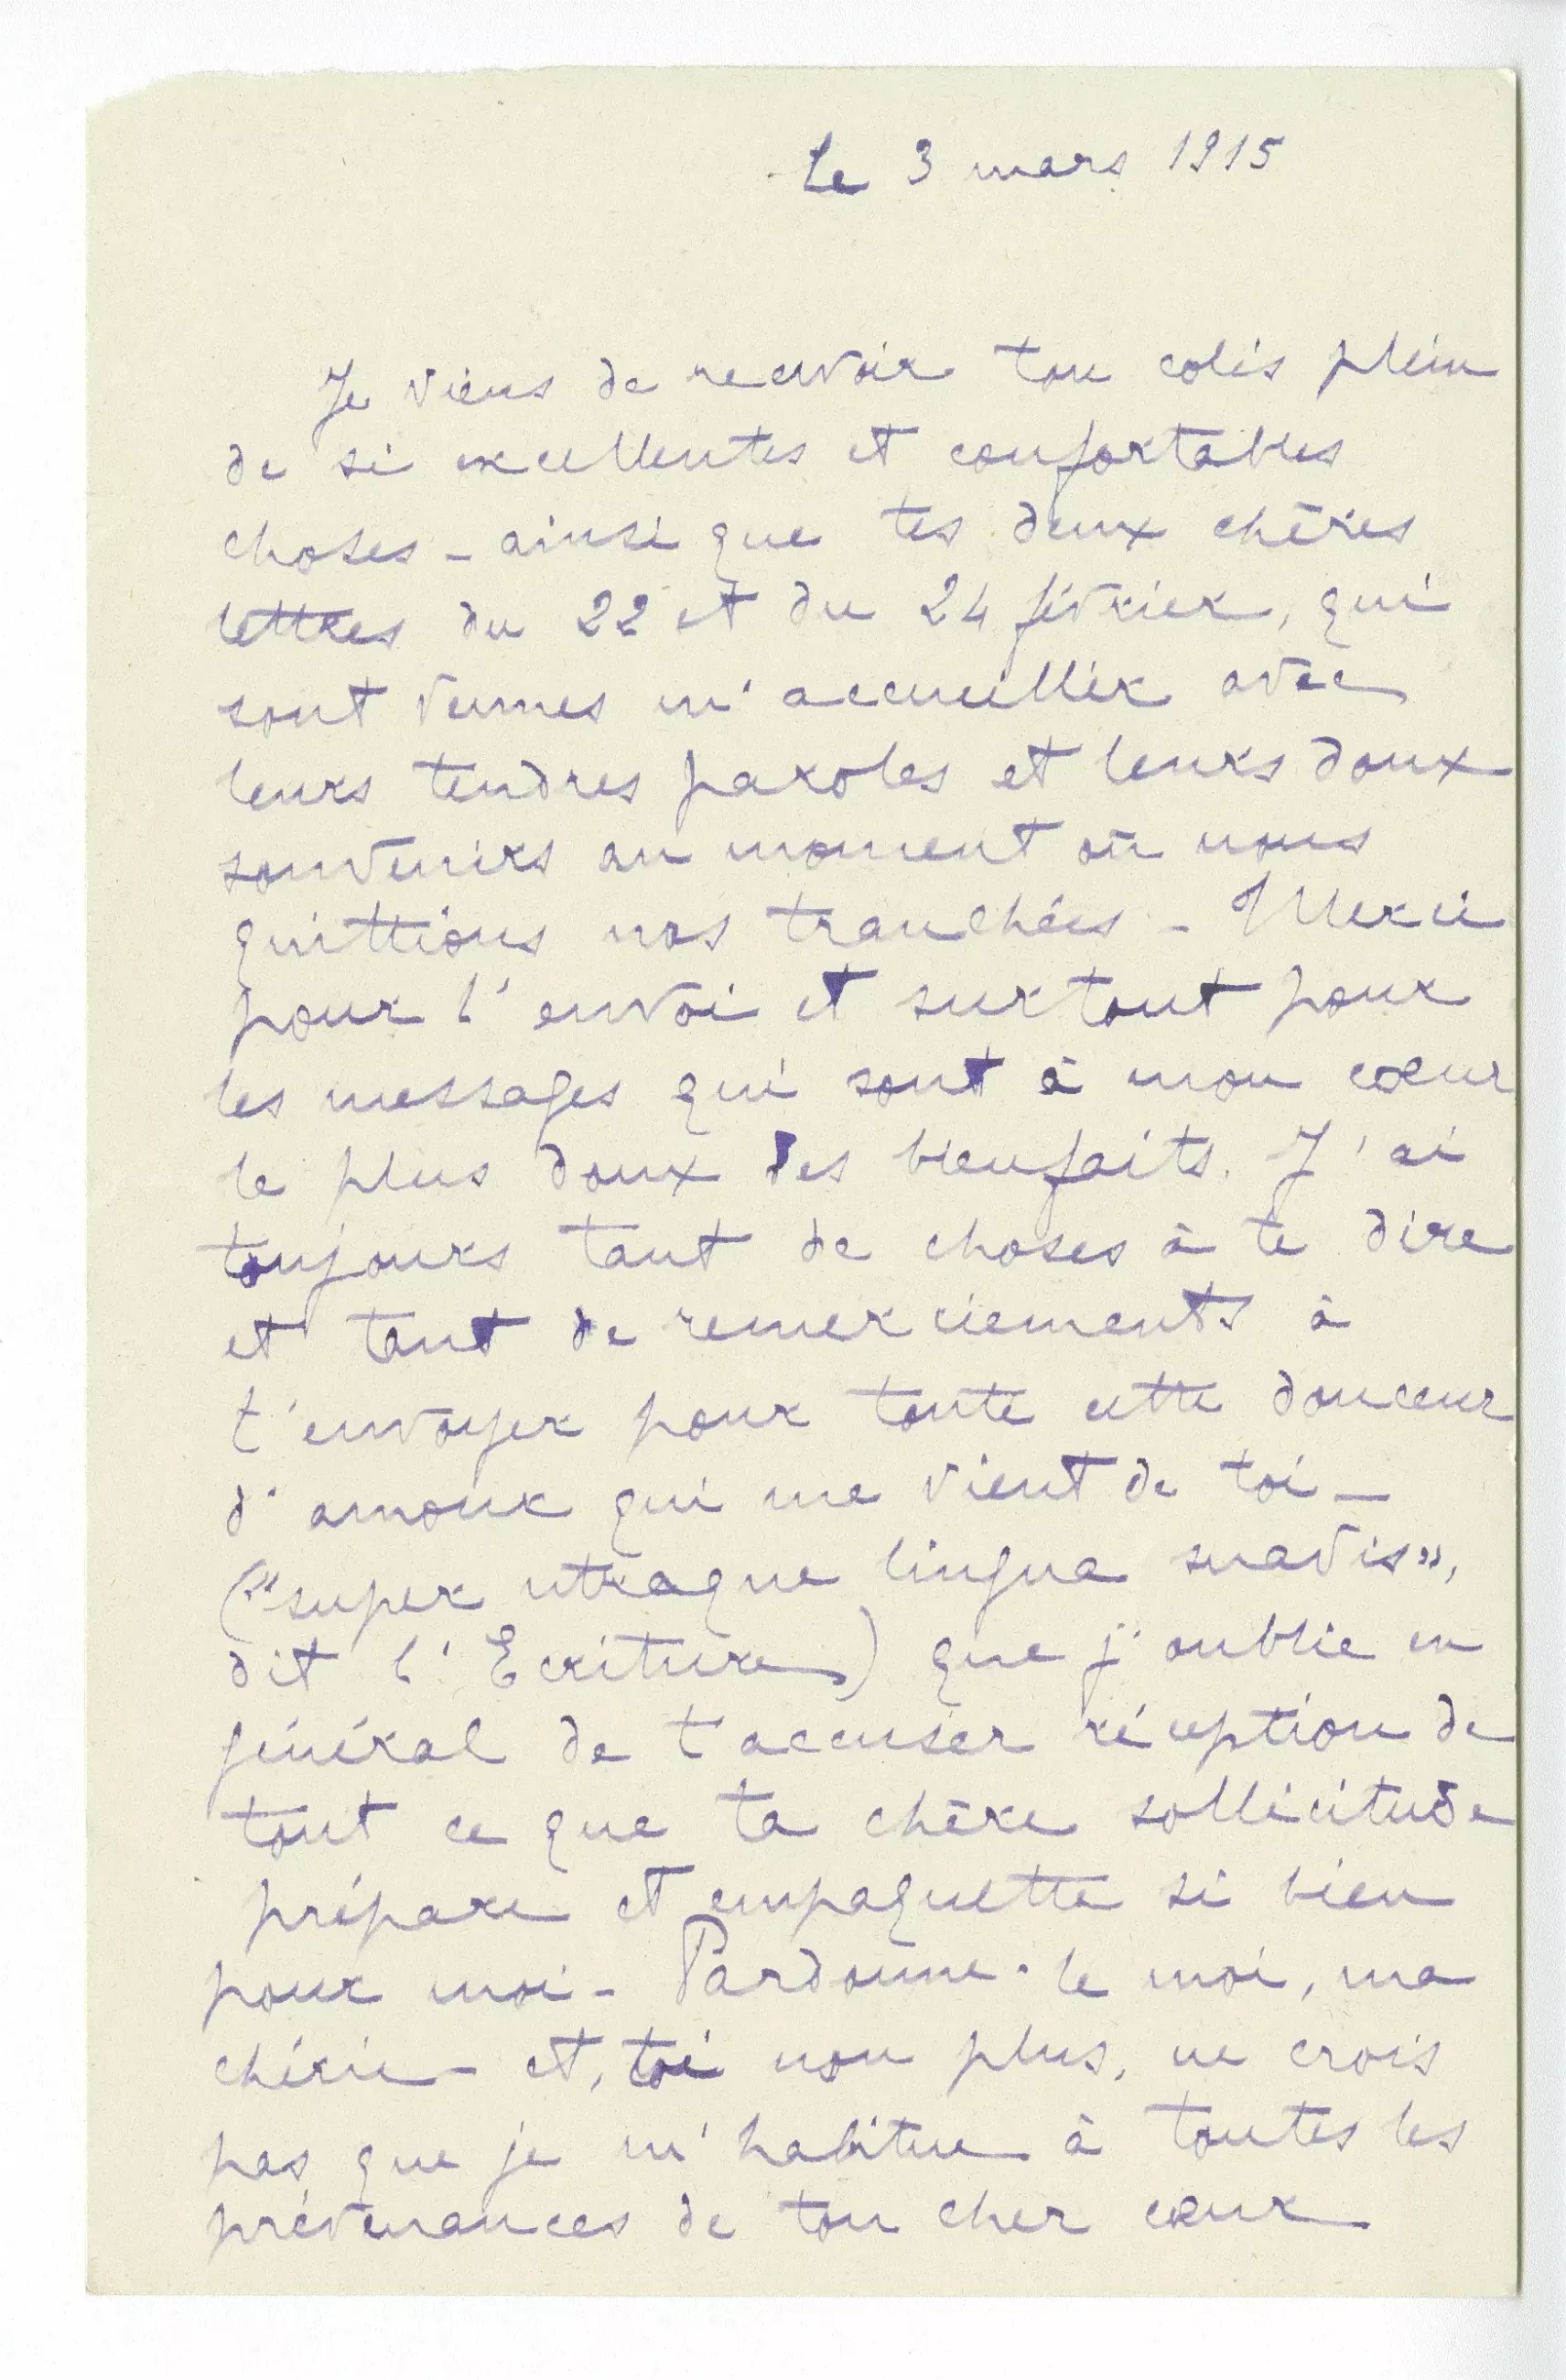 Le 3 mars 1915
Je viens de recevoir ton colis plein
de si excellentes et confortables
choses - ainsi que tes deux chères
lettres du 22 et du 24 février, qui
sont venues m'accueillir avec
leurs tendres paroles et leurs doux
souvenirs au moment où nous
quittions nos tranchées - Merci
pour l'envoi et surtout pour
les messages qui sont à mon cœur
le plus doux des bienfaits. J'ai
toujours tant de choses à te dire
et tant de remerciements à
t'envoyer pour toute cette douceur
d'amour qui me vient de toi -
("super utraque lingua suavis",
dit l'Ecriture) que j'oublie en
général de t'accuser réception de
tout ce que ta chère sollicitude
prépare et empaquette si bien
pour moi - Pardonne-le moi, ma
chérie - et, toi non plus, ne crois
pas que je m'habitue à toutes les
prévenances de ton cher cœur